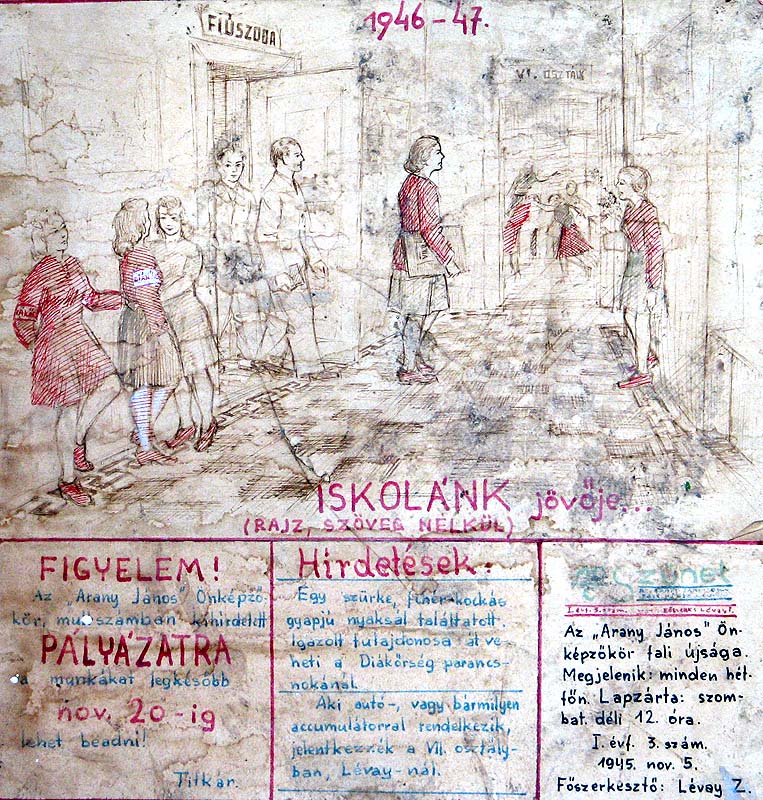 1946-47.
FIÚSZOBA
VI. OSZTÁLY
ISKOLÁNK jövője...
(RAJZ, SZÖVEG NÉLKÜL)
FIGYELEM!
Az „Arany János" Önképző-
kör, mult számban kihirdetett
PÁLYÁZATRA
a munkákat legkésőbb
nov. 20-ig
lehet beadni!
Titkár.
Hirdetések.
Egy szürke, fehér-kockás
gyapjú nyaksál találtatott.
Igazolt tulajdonosa átve-
heti a Diákőrség parancs-
nokánál.
Aki autó-, vagy bármilyen
accumulátorral rendelkezik,
jelentkezzék a VII. osztály-
ban, Lévay-nál.
I. évf. 3. szám.
Az „Arany János" Ön-
képzőkör fali újsága.
Megjelenik: minden hét-
főn. Lapzárta: szom-
bat. déli 12. óra.
I. évf. 3. szám.
1945. nov. 5.
Főszerkesztő: Lévay Z.